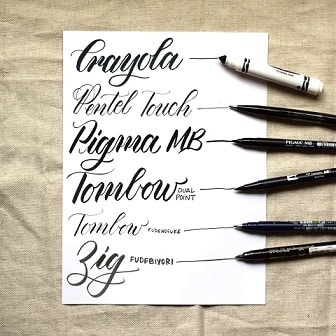 Crayola
Pentel Touch
Pigma MB
PIGMA MB
Tombow DUAL POINT
Tombow FUDENOSUKE
Zig FUDEBIYORI